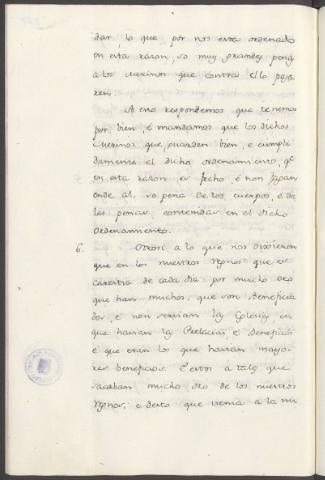 dar, lo que por nos esta ordenado
en esta razon, so muy grandes pena
a los merinos que contra ello pasa
ren.
A esto respondemos que tenemos
por bien, é mandamos que los dichos
merinos que guarden bien, é cumpli
damente el dicho ordenamiento, qe
en esta razon es fecho, é non fagan
ende al, so pena de los cuerpos, é de
las penas contenidas en el dicho
Ordenamiento.
6. Otrosi a lo que nos dixieron
que en los nuestros Regnos que es
carestia de cada dia por mucho oro
que han muchos, que son Beneficia
dos, é non servian las Eglesias en
que havian las Prelacias, é Beneficios
é que eran los que havian mayo-
res beneficios. E estos a tales que
sacaban mucho oro de los nuestros
Regnos, e desto que venia a la nu